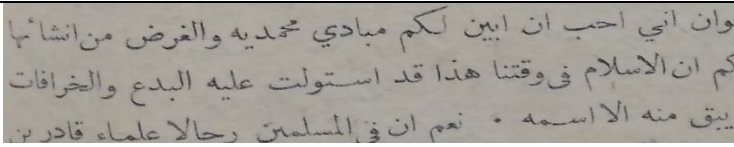 وان اني احب ان ابين لكم مبادي محمديه والغرض من انشائها
كم ان الاسلام فى وقتنا هذا قد استولت عليه البدع والخرافات
يبق منه الا اسمه ٠ نعم ان فى المسلمين رجالا علماء قادرين